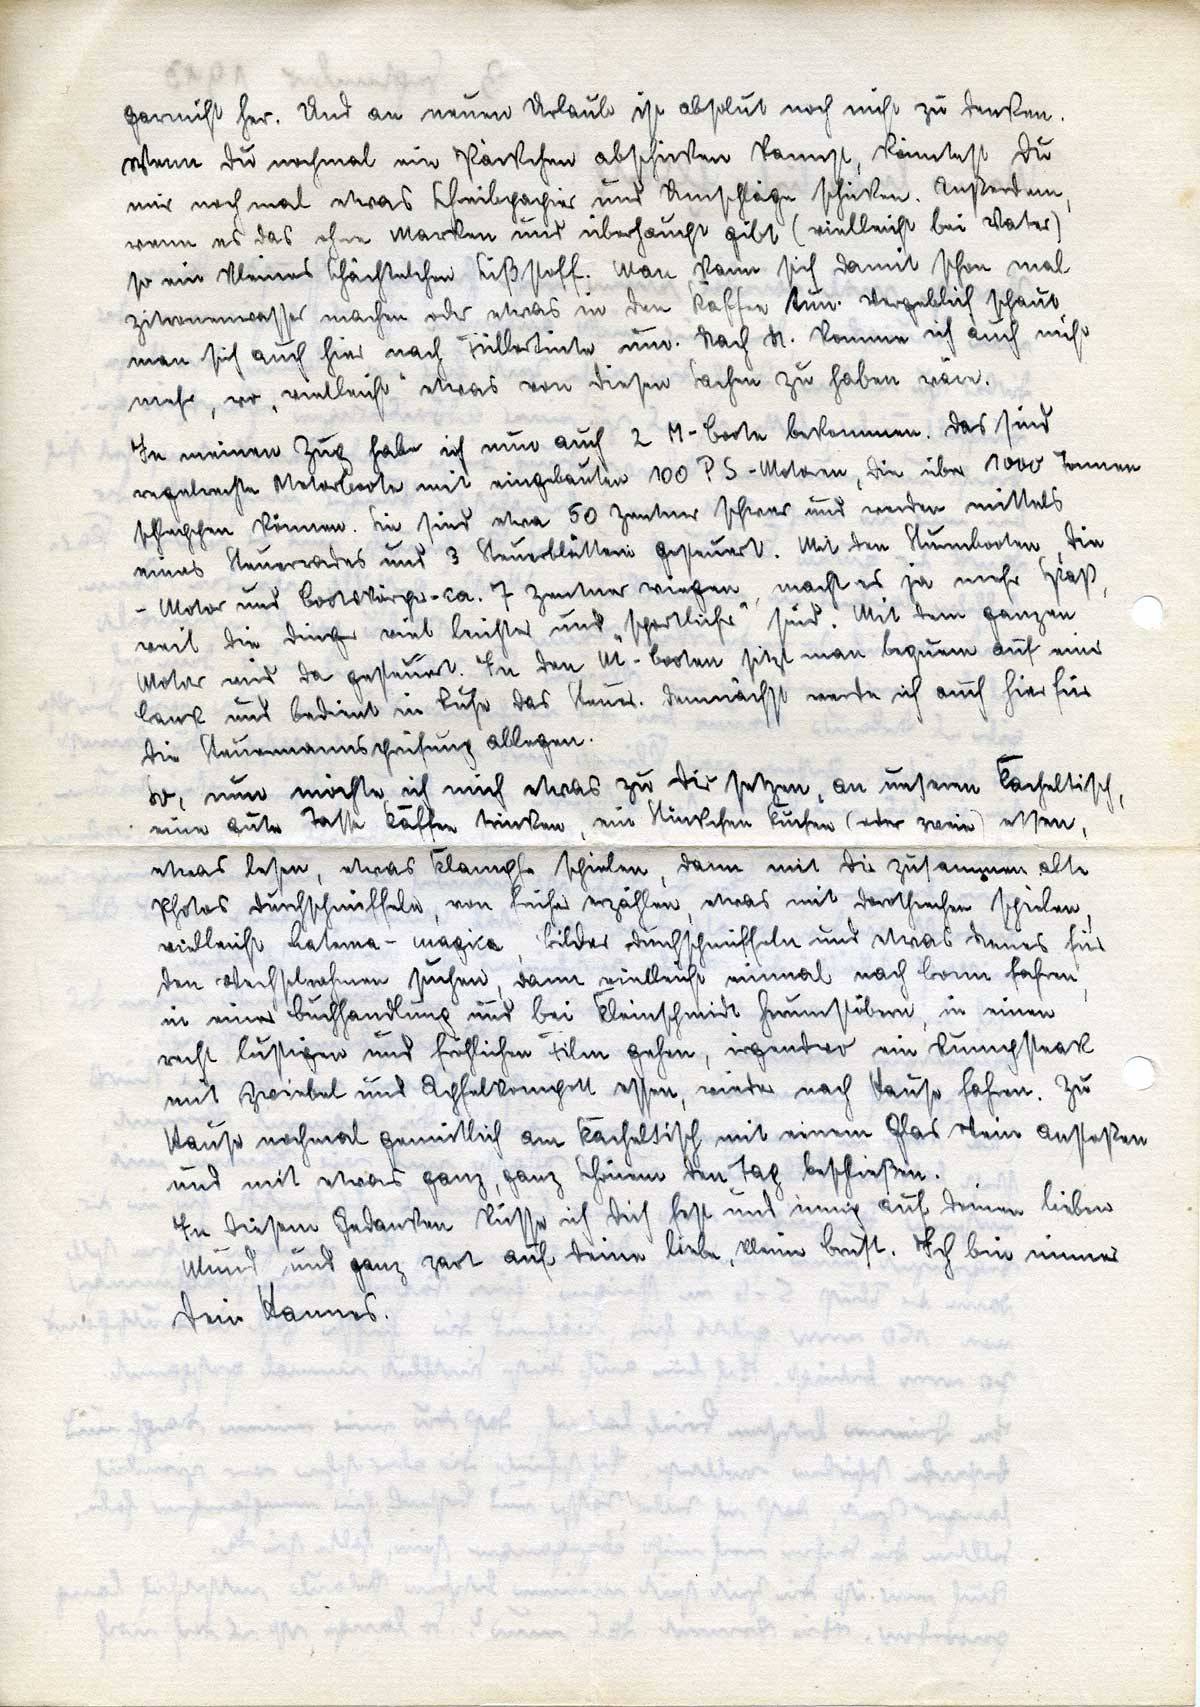 garnicht her. Und an neuen Urlaub ist absolut noch nicht zu denken.
Wenn Du nochmal ein Päckchen abschicken kannst, könntest Du
mir nochmal etwas Schreibpapier und Umschläge schicken. Außerdem,
wenn es das ohne Marken und überhaupt gibt (vielleicht bei Vater)
so ein kleines Schächtelchen Süßstoff. Man kann sich damit schon mal
Zitronenwasser machen oder etwas in den Kaffee tun. Vergeblich schaut
man sich auch hier nach Füllertinte um. Nach N. komme ich auch nicht
mehr, wo „vielleicht" etwas von diesen Sachen zu haben wäre.
In meinen Zug habe ich nun auch 2 M-Boote bekommen. Das sind
regelrechte Motorboote mit eingebauten 100 PS-Motoren, die über 1000 Tonnen
schleppen können. Sie sind etwa 50 Zentner schwer und werden mittels
eines Steuerrades und 3 Steuerblättern gesteuert. Mit den Sturmbooten, die
- Motor und Bootskörper - ca. 7 Zentner wiegen, macht es ja mehr Spaß,
weil die Dinger viel leichter und „sportlicher" sind. Mit dem ganzen
Motor wird da gesteuert. In den M-Booten sitzt man bequem auf einer
Bank und bedient in Ruhe das Steuer. Demnächst werde ich auch hierfür
die Steuermannsprüfung ablegen.
So, nun möchte ich mich etwas zu Dir setzen, an unseren Kacheltisch,
eine gute Tasse Kaffee trinken, ein Stückchen Kuchen (oder zwei) essen,
etwas lesen, etwas Klampfe spielen, dann mit Dir zusammen alte
Photos durchschnüffeln, von früher erzählen, etwas mit Dorothechen spielen,
vielleicht Laterna-magica, Bilder durchschnüffeln und etwas Neues für
den Wechselrahmen suchen, dann vielleicht einmal nach Bonn fahren,
in einer Buchhandlung und bei Kleinschmidt herumstöbern, in einen
recht lustigen und fröhlichen Film gehen, irgendwo ein Rumpsteak
mit Zwiebel und Apfelkompott essen, wieder nach Hause fahren. Zu
Hause nochmal gemütlich am Kacheltisch mit einem Glas Wein anstoßen
und mit etwas ganz, ganz Schönem den Tag beschließen.
In diesem Gedanken küsse ich Dich fest und innig auf Deinen lieben
Mund und ganz zart auf Deine liebe, kleine Brust. Ich bin immer
Dein Hannes.